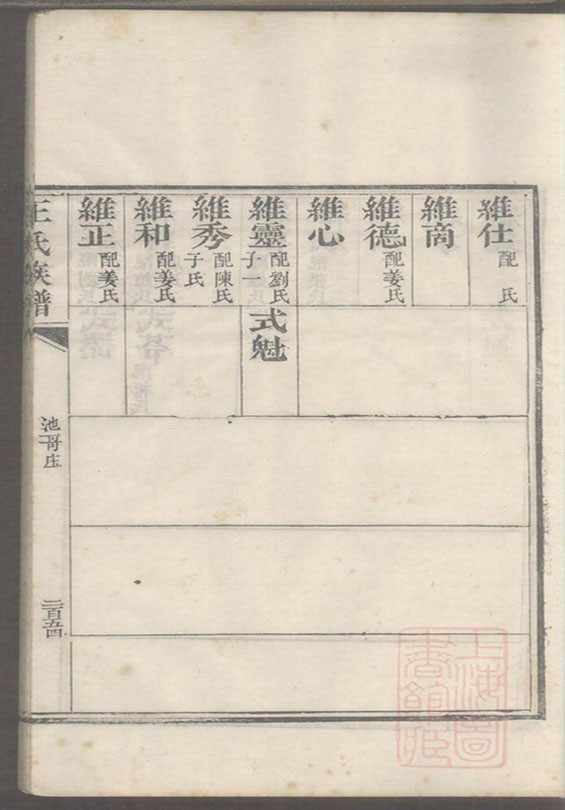 維仕 配 氏
維商
維德 配姜氏
維心
維靈 配劉氏 子一
式魁
維秀 配陳氏 子氏
維和 配姜氏
維正 配姜氏
王氏族譜
池哥庄
二百五四
上海圖書館藏